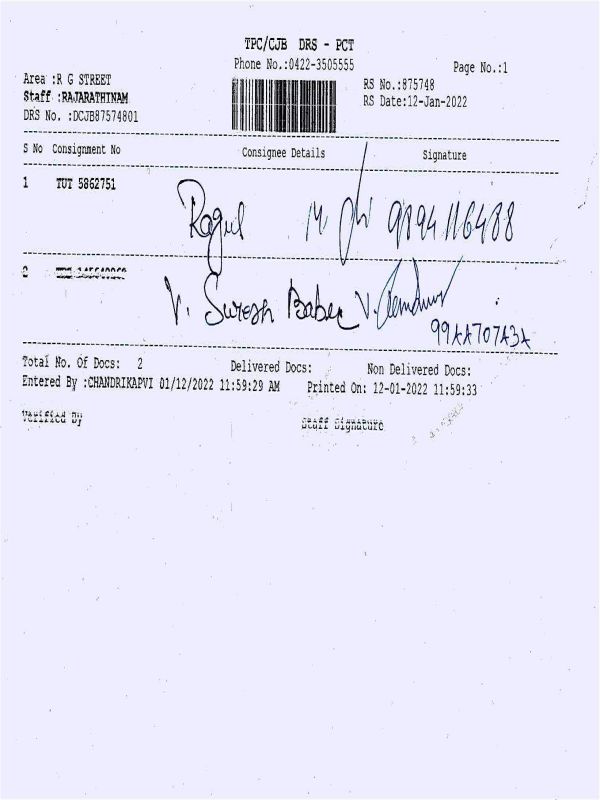 TPC/CJB DRS - PCT
Phone No.:0422-3505555
Page No.:1
Area :R G STREET
RS No.:875748
Staff :RAJARATHINAM
RS Date:12-Jan-2022
DRS No. :DCJB87574801
S No Consignment No Consignee Details Signature
1 TUT 5862751
Ragul M. 9894116488
2
V. Suresh Babu V.
Total No. Of Docs: 2 Delivered Docs: Non Delivered Docs:
Entered By :CHANDRIKAPVI 01/12/2022 11:59:29 AM Printed On: 12-01-2022 11:59:33
Verified By Staff Signature